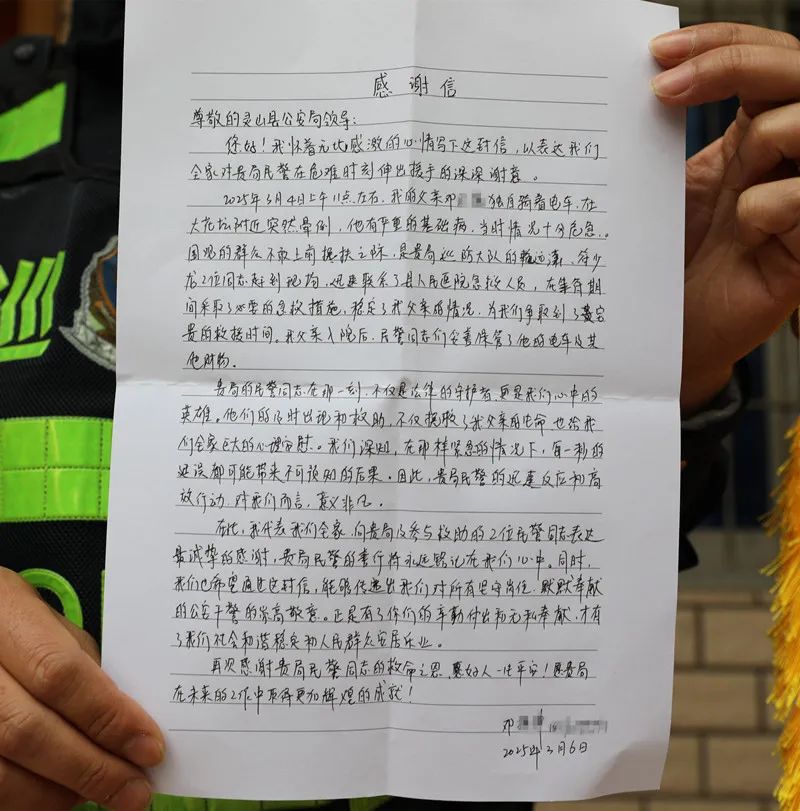 感谢信
尊敬的灵山县公安局领导:
您好!我怀着无比感激的心情写下这封信,以表达我们
全家对贵局民警在危难时刻伸出援手的深深谢意。
2025年3月4日上午11点左右,我的父亲邓 独自骑着电车,在
大花坛附近突然晕倒,他有严重的基础病,当时情况十分危急。
围观的群众不敢上前搀扶之际,是贵局巡防大队的 符少
龙2位同志赶到现场,迅速联系了县人民医院急救人员,在等待期
间采取了必要的急救措施,稳定了我父亲的情况,为我们争取到了宝
贵的救援时间。我父亲入院后,民警同志们安善保管了他的电车及其
他财物。
贵局的民警同志在那一刻,不仅是法律的守护者,更是我们心中的
英雄。他们的及时出现和救助,不仅挽救了我父亲的生命也给我
们全家巨大的心理安慰。我们深知,在那样紧急的情况下,每一秒的
延误都可能带来不可预知的后果。因此,贵局民警的迅速反应和高
效行动,对我们而言,意义非凡。
在此,我代表我们全家,向贵局及参与救助的2位民警同志表达
最诚挚的感谢,贵局民警的善行将永远铭记在我们心中。同时,
我们也希望通过这封信,能够传递出我们对所有坚守岗位、默默奉献
的公安干警的崇高敬意。正是有了你们的辛勤付出和无私奉献,才有
了我们社会和谐稳定和人民群众安居乐业。
再次感谢贵局民警同志的救命之恩,愿好人一生平安!愿贵局
在未来的工作中取得更加辉煌的成就!
邓
2025年3月6日
巡